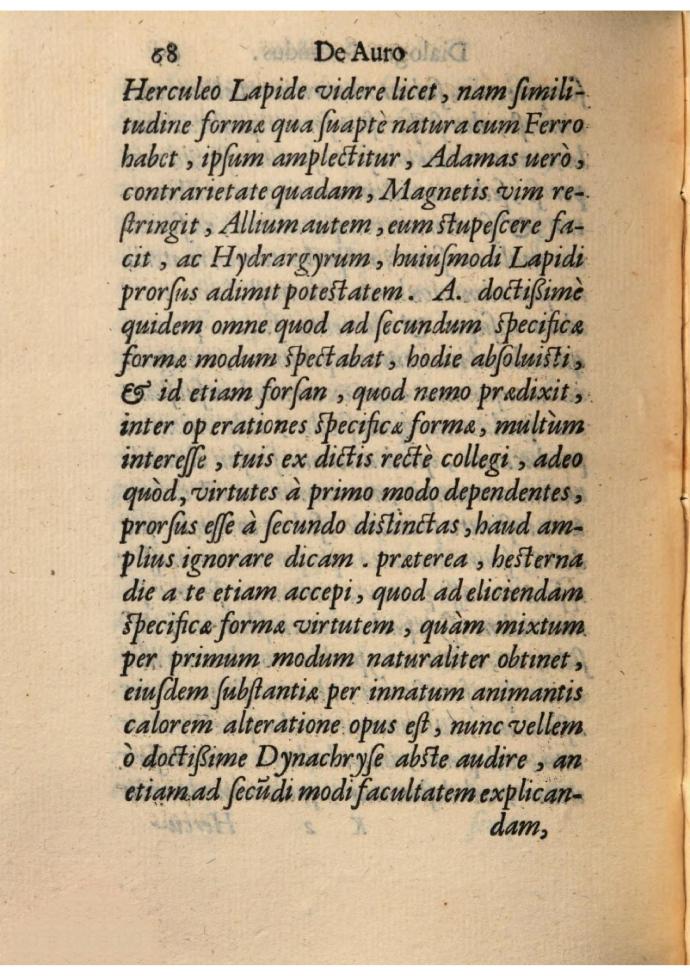 68 De Auro
Herculeo Lapide videre licet, nam ſimili-
tudine formæ qua ſuaptè natura cum Ferro
habet, ipſum amplectitur, Adamas uerò,
contrarietate quadam, Magnetis vim re-
ſtringit, Allium autem, eum ſtupeſcere fa-
cit, ac Hydrargyrum, huiuſmodi Lapidi
prorſus adimit poteſtatem. A. doctißimè
quidem omne quod ad ſecundum ſpecificæ
formæ modum ſpectabat, hodie abſoluiſti,
& id etiam forſan, quod nemo prædixit,
inter operationes ſpecificæ formæ, multùm
intereſſe, tuis ex dictis rectè collegi, adeo
quòd, virtutes à primo modo dependentes,
prorſus eſſe à ſecundo diſtinctas, haud am-
plius ignorare dicam. præterea, heſterna
die a te etiam accepi, quod ad eliciendam
ſpecificæ formæ virtutem, quàm mixtum
per primum modum naturaliter obtinet,
eiuſdem ſubſtantiæ per innatum animantis
calorem alteratione opus eſt, nunc vellem
ò doctißime Dynachryſe abſte audire, an
etiam ad ſecūdi modi facultatem explican-
dam,